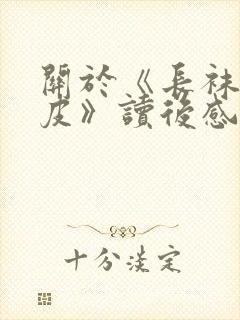 關於《長袜
皮》讀後感
十分淡定